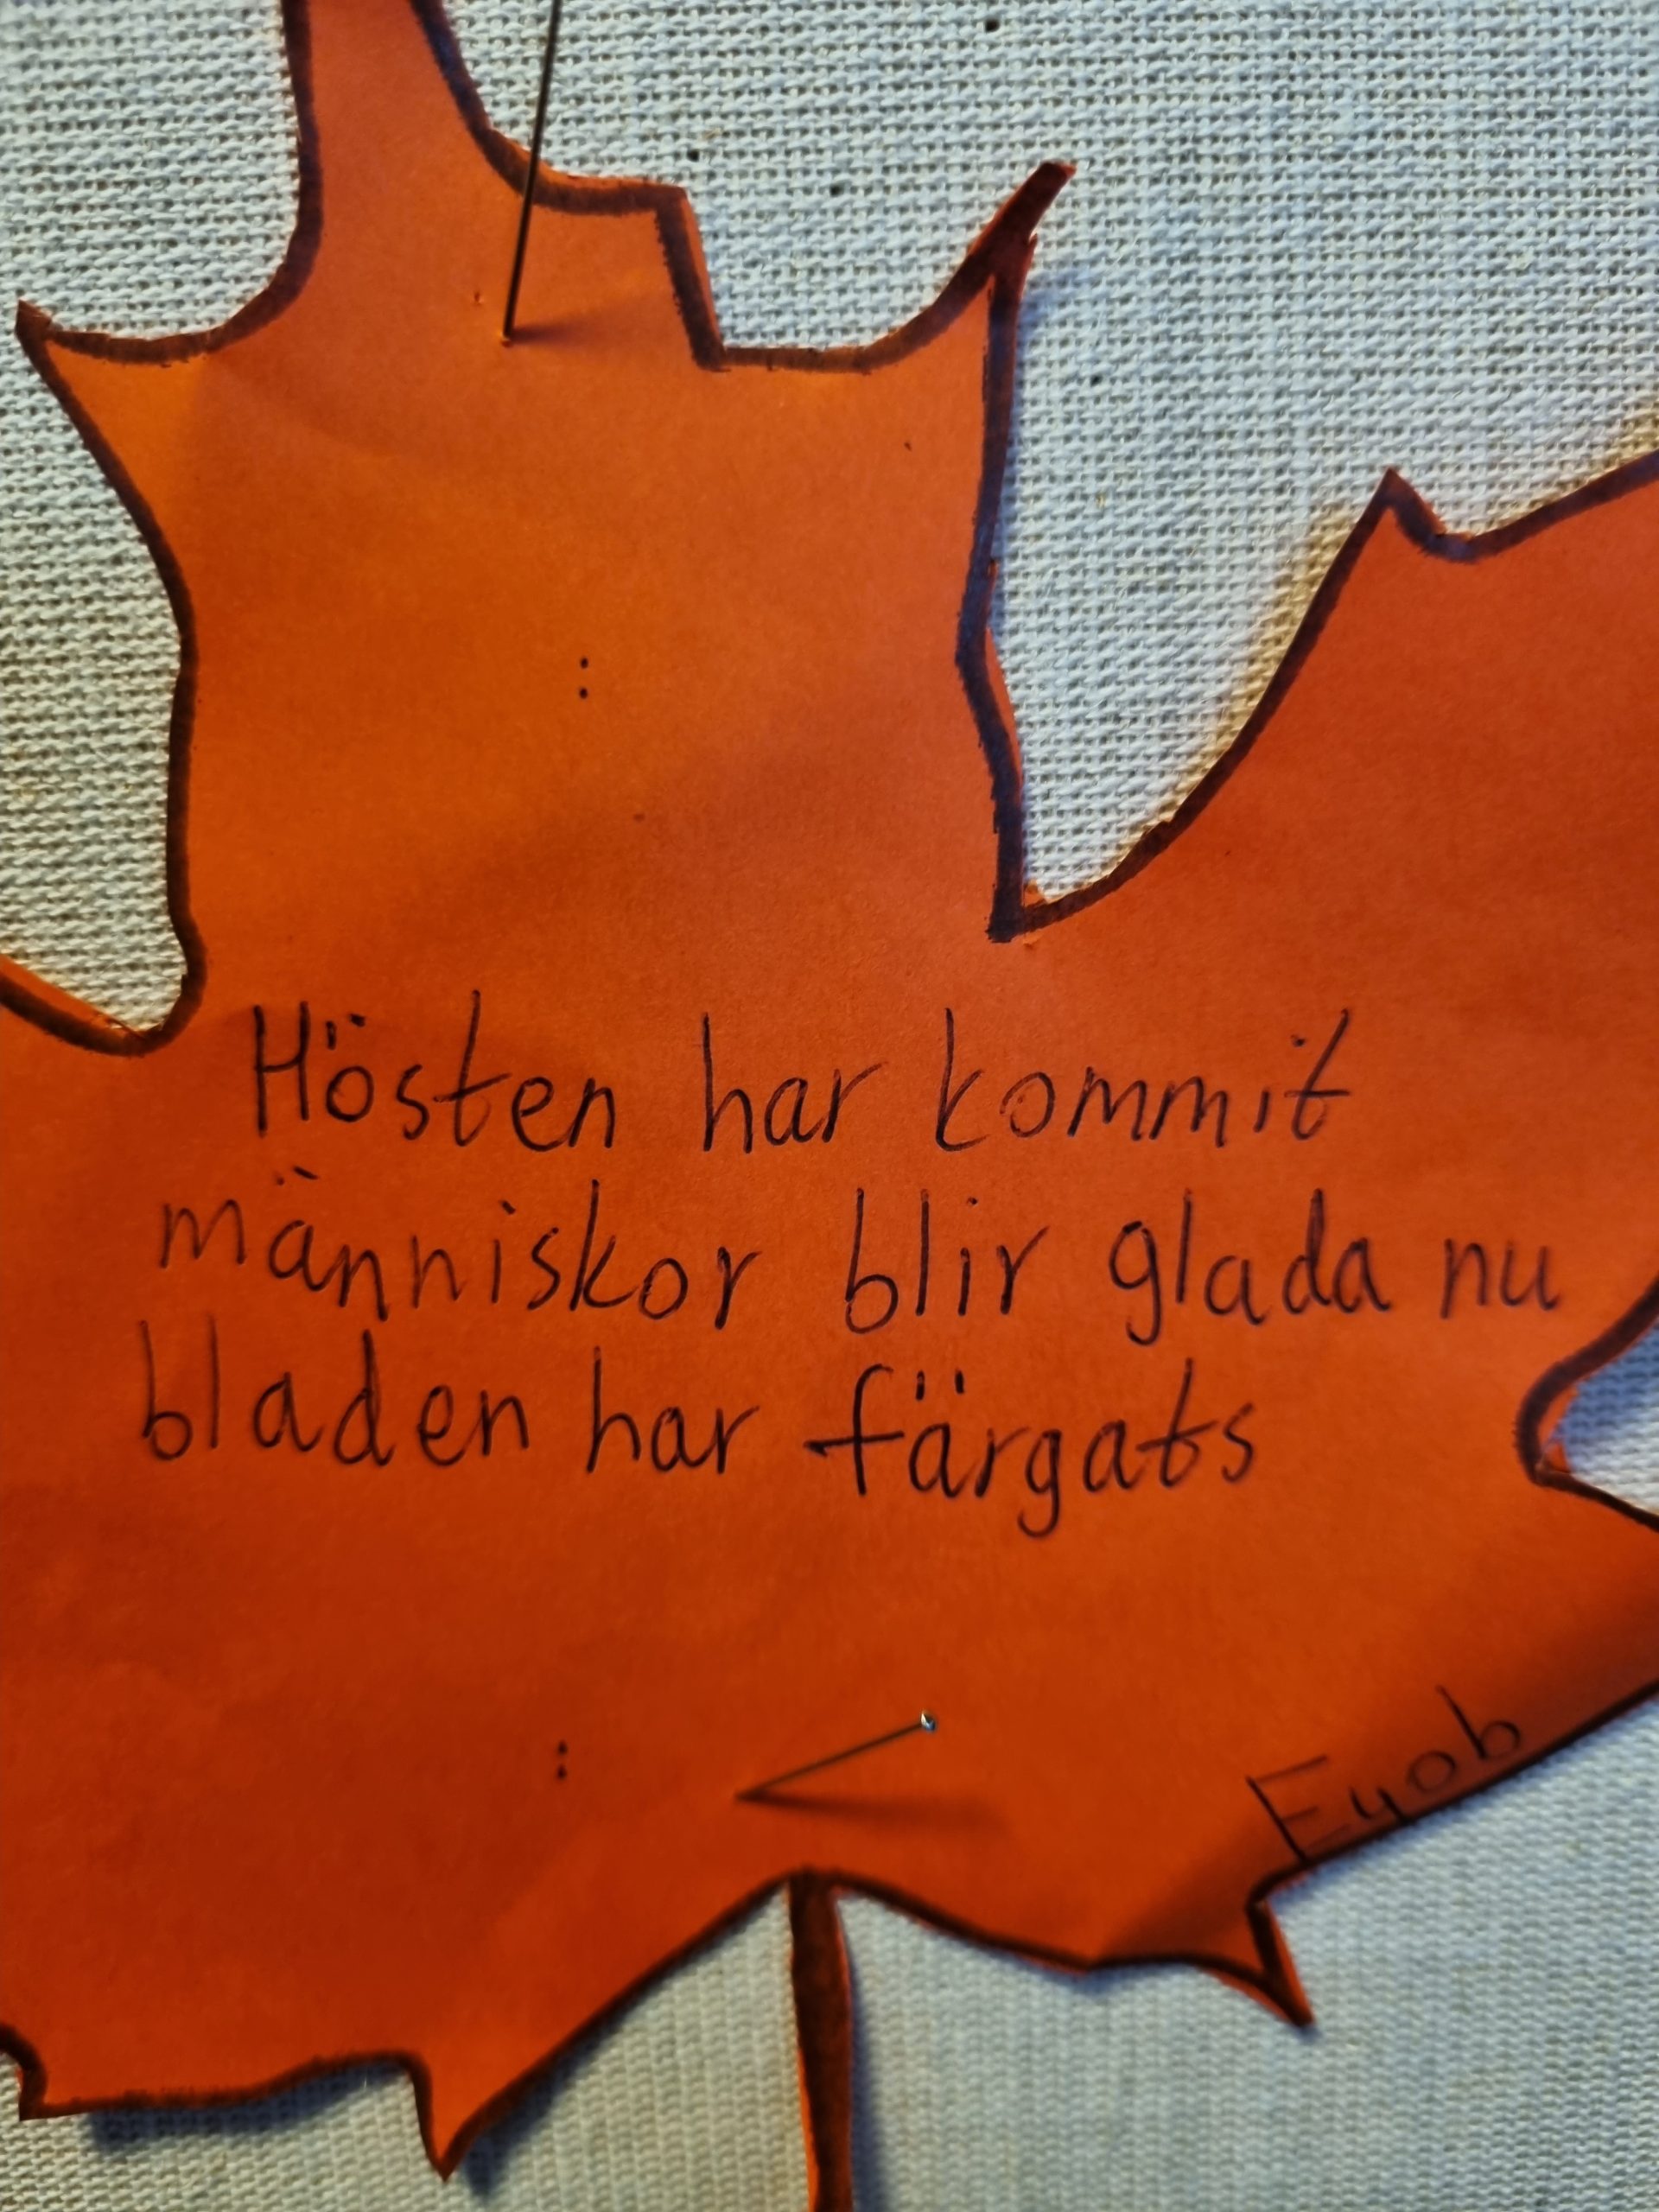 Hösten har kommit
människor blir glada nu
bladen har färgats
Eyob